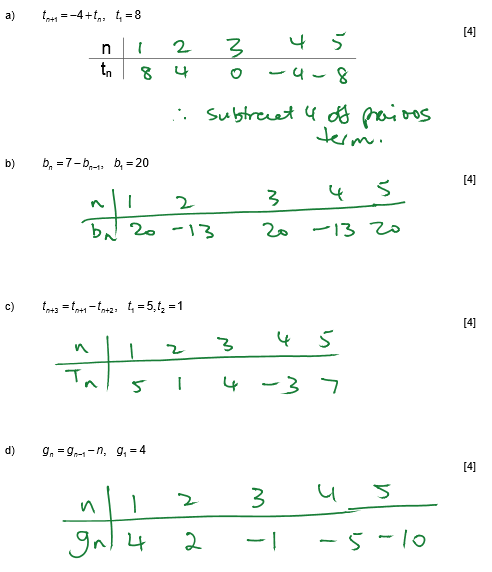 a) tₙ₊₁ = -4 + tₙ, t₁ = 8
[4]
n 1 2 3 4 5
tₙ 8 4 0 -4 -8
∴ subtract 4 off previous
term.
b) bₙ = 7 - bₙ₋₁, b₁ = 20
[4]
n 1 2 3 4 5
bₙ 20 -13 20 -13 20
c) tₙ₊₃ = tₙ₊₁ - tₙ₊₂, t₁ = 5, t₂ = 1
[4]
n 1 2 3 4 5
Tₙ 5 1 4 -3 7
d) gₙ = gₙ₋₁ - n, g₁ = 4
[4]
n 1 2 3 4 5
gₙ 4 2 -1 -5 -10